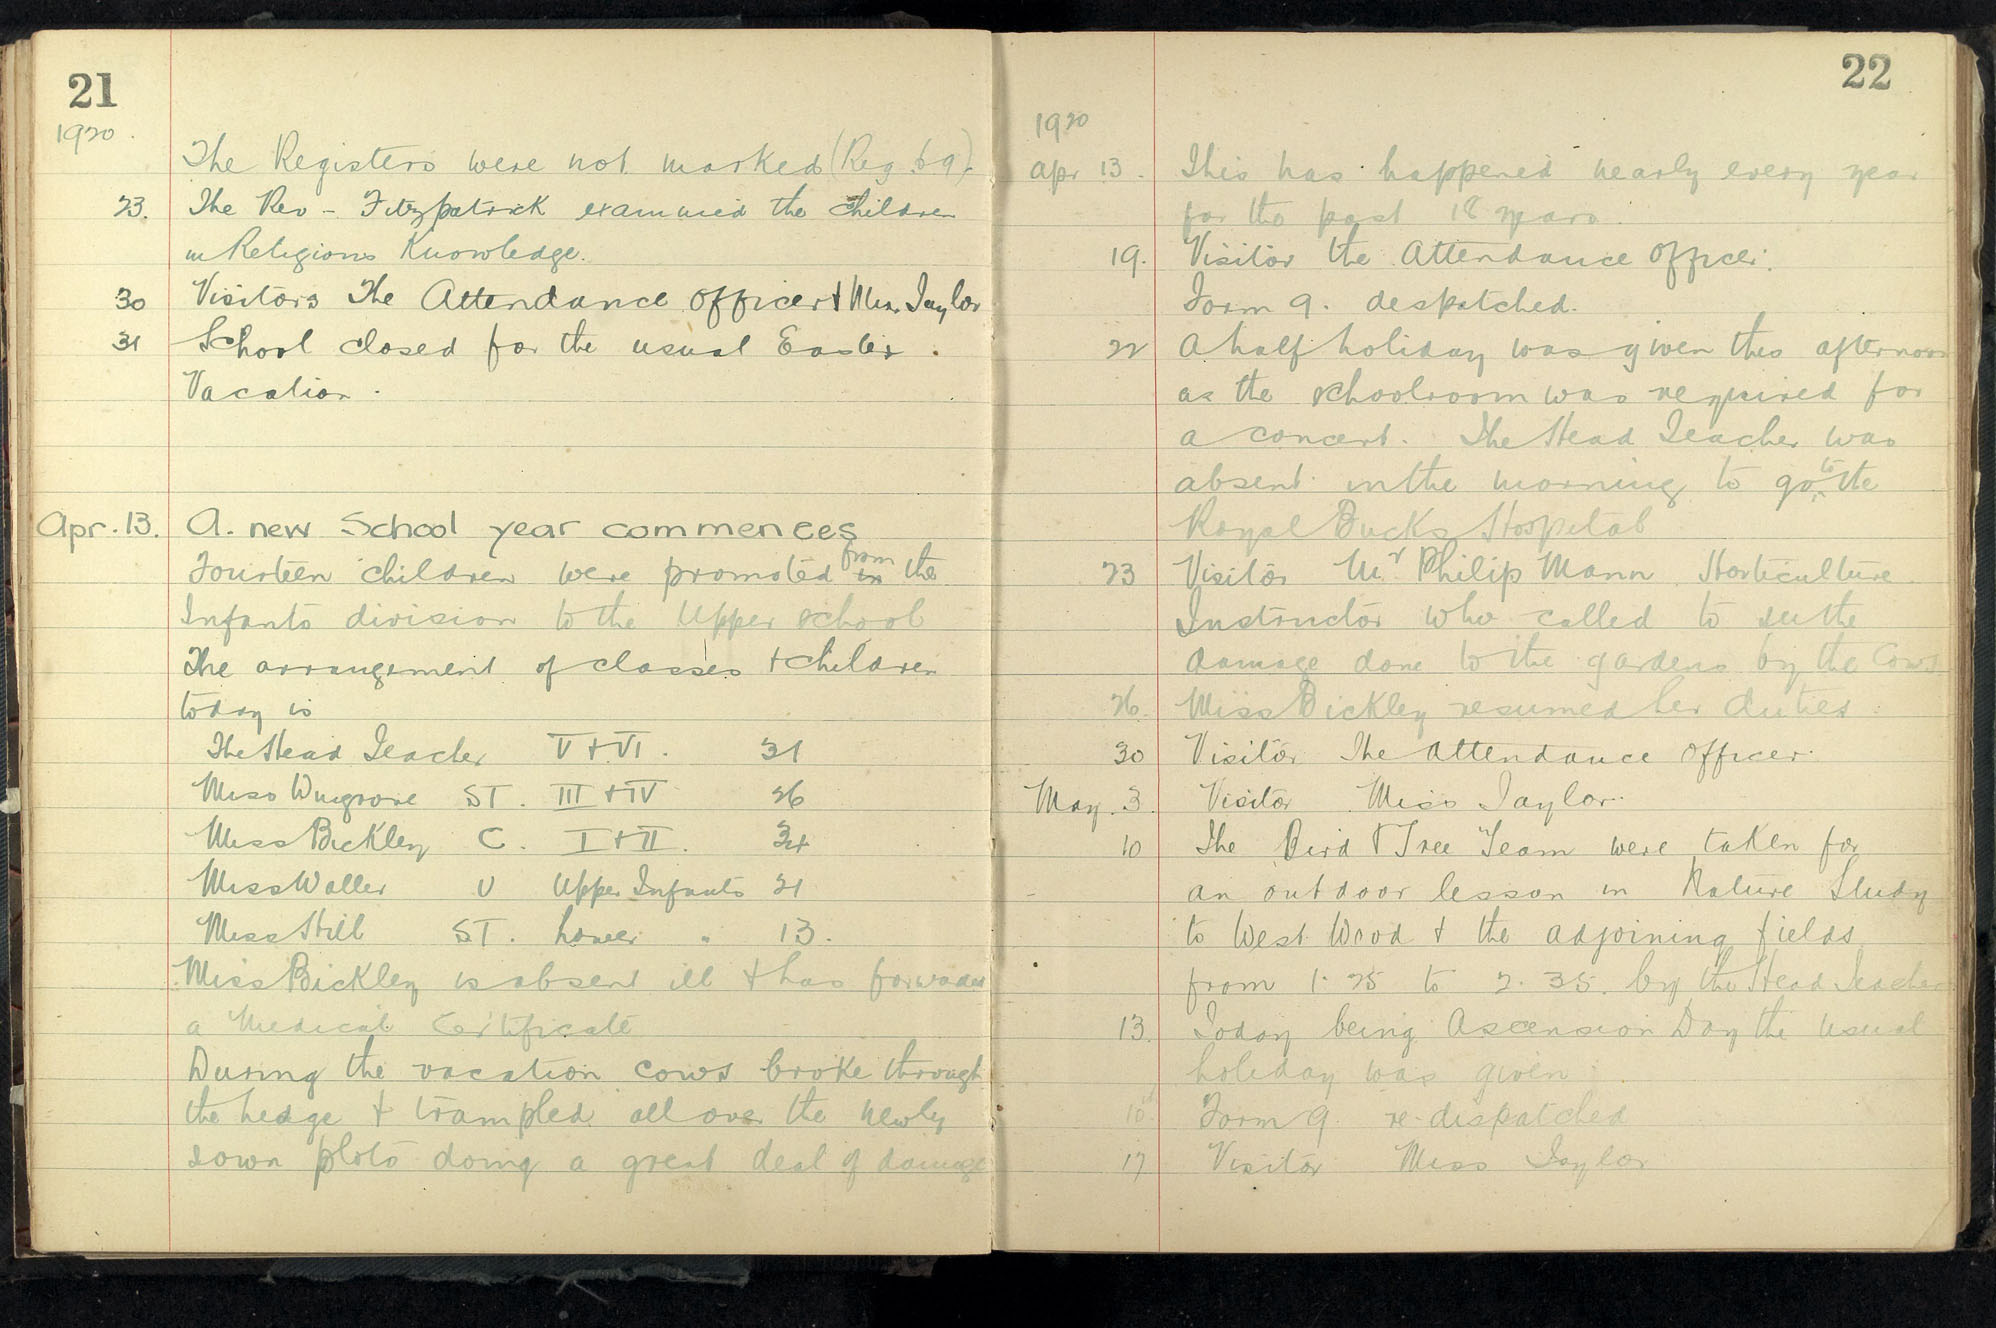 21
1920.
The Registers were not marked (Reg. 69).
23. The Rev - Fitzpatrick examined the children
in Religious Knowledge.
30 Visitors The Attendance Officer & Miss Taylor
31 School closed for the usual Easter
Vacation.
Apr. 13. A. new School year commences
Fourteen children were promoted in from the
Infants division to the Upper school
The arrangement of classes & children
today is
The Head Teacher V & VI. 31
Miss Wingrove ST. III & IV 26
Miss Bickley C. I & II. 34
Miss Waller U Upper Infants 21
Miss Hill ST. Lower " 13.
Miss Bickley is absent ill & has forwarded
a Medical Certificate
During the vacation cows broke through
the hedge & trampled all over the newly
sown plots doing a great deal of damage
22
1920
Apr 13. This has happened nearly every year
for the past 18 years.
19. Visitor the Attendance Officer.
Form 9. despatched.
22 A half holiday was given this afternoon
as the schoolroom was required for
a concert. The Head Teacher was
absent in the morning to go to the
Royal Bucks Hospital
23 Visitor Mr Philip Mann Horticulture
Instructor who called to see the
damage done to the gardens by the Cows
26. Miss Bickley resumed her duties.
30 Visitor The Attendance Officer.
May. 3. Visitor Miss Taylor.
10 The Bird & Tree Team were taken for
an outdoor lesson in Nature Study
to West Wood & the adjoining fields
from 1.25 to 2.35. by the Head Teacher
13. Today being Ascension Day the usual
holiday was given
10th Form 9 re-dispatched
17 Visitor Miss Taylor